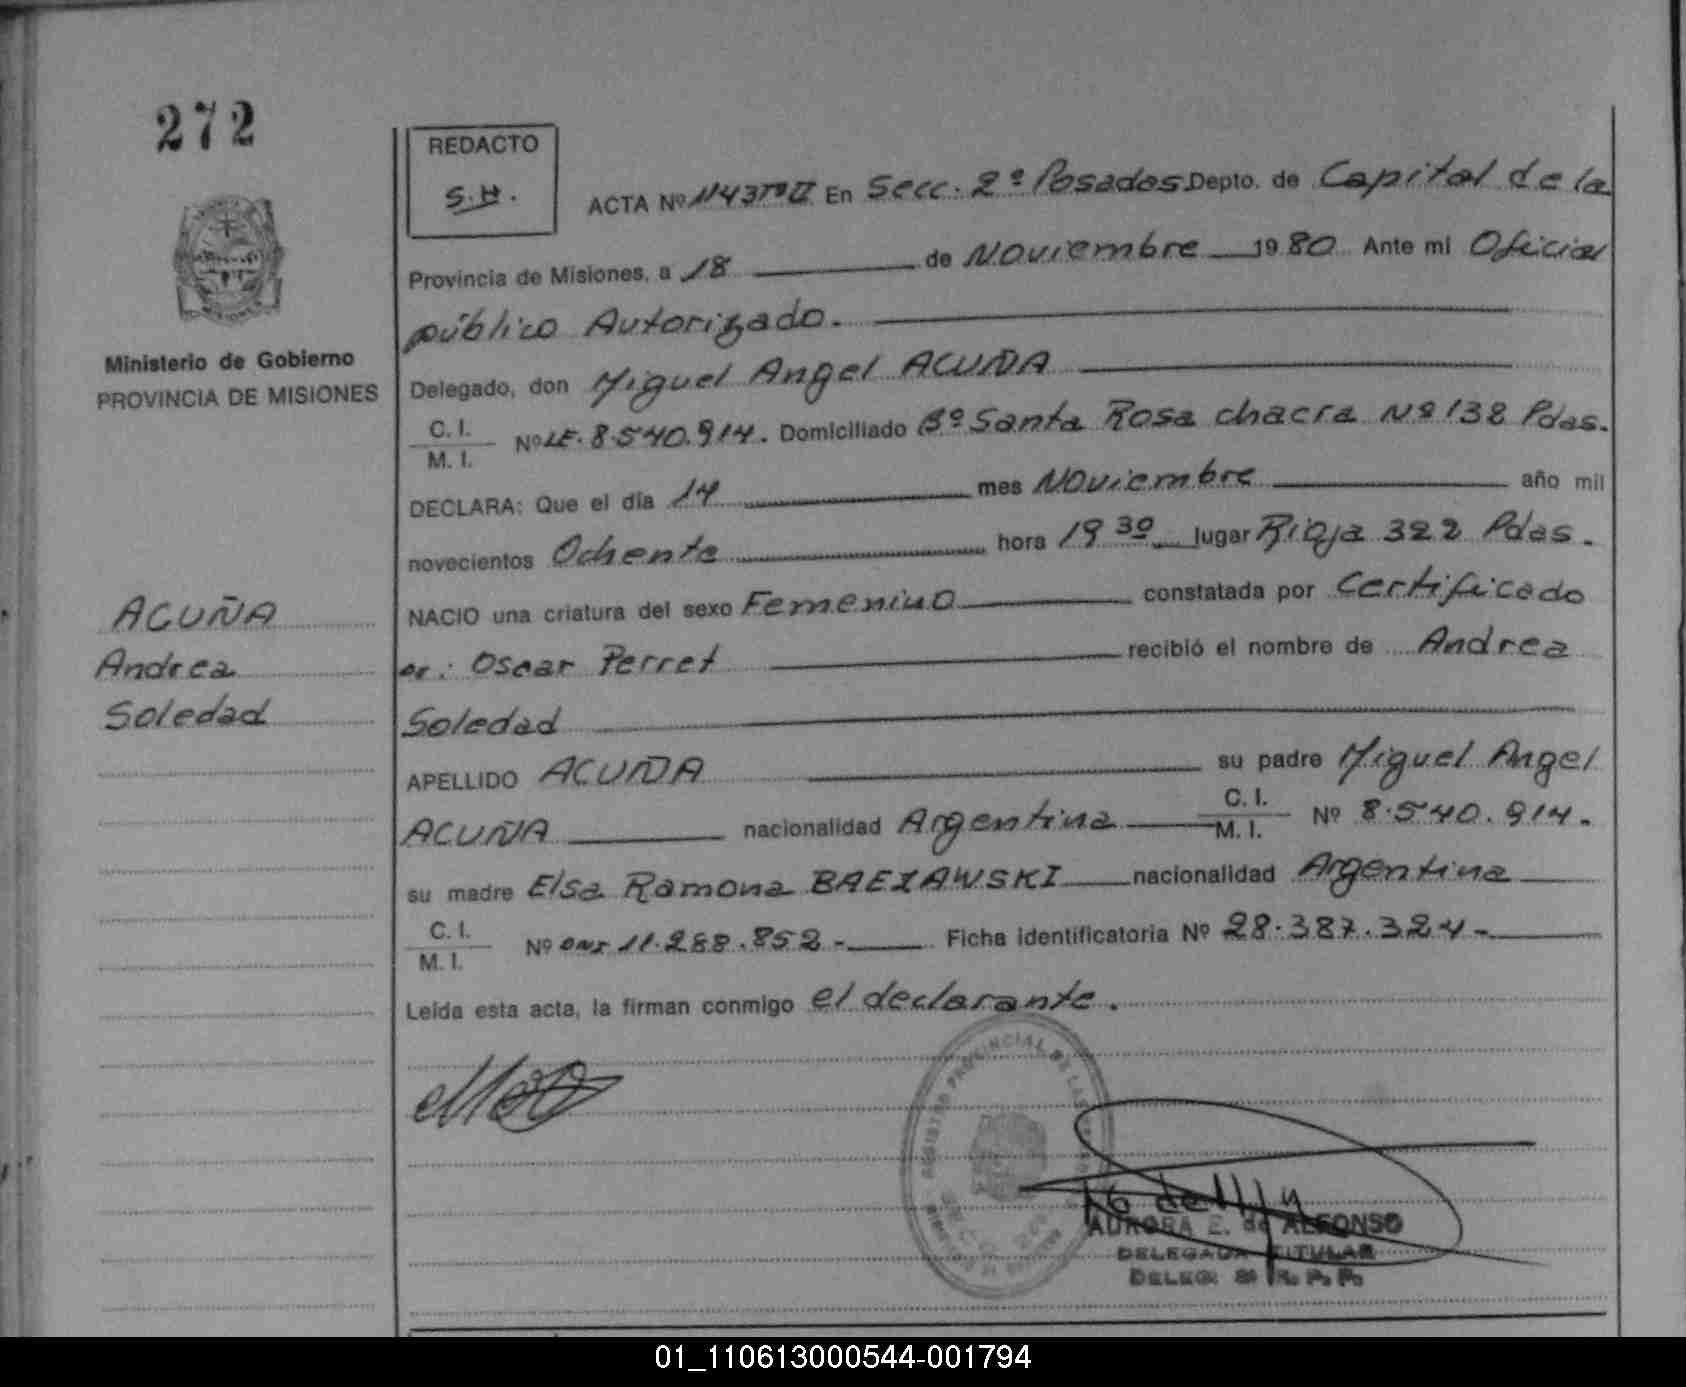 272
REDACTO
S.H.
ACTA Nº 1143 Tº II En Secc. 2º Posadas Depto. de Capital de la
Provincia de Misiones, a 18 de Noviembre 1980 Ante mi Oficial
público Autorizado.
Ministerio de Gobierno
PROVINCIA DE MISIONES
Delegado, don Miguel Angel ACUÑA
C. I.
M. I. Nº LE. 8.540.914. Domiciliado Bº Santa Rosa chacra Nº 138 Pdas.
DECLARA: Que el día 14 mes Noviembre año mil
novecientos Ochenta hora 19 30 lugar Rioja 322 Pdas.
NACIO una criatura del sexo Femenino constatada por Certificado
Dr.: Oscar Perret recibió el nombre de Andrea
Soledad
ACUÑA
Andrea
Soledad
APELLIDO ACUÑA su padre Miguel Angel
ACUÑA nacionalidad Argentina C. I.
M. I. Nº 8.540.914.
su madre Elsa Ramona BAEZAWSKI nacionalidad Argentina
C. I.
M. I. Nº DNI 11.288.852.- Ficha identificatoria Nº 28.387.324-
Leída esta acta, la firman conmigo el declarante.
REGISTRO PROVINCIAL DE LAS
AURORA E. de ALFONSO
DELEGADA TITULAR
DELEG. R. P. P.
01_110613000544-001794